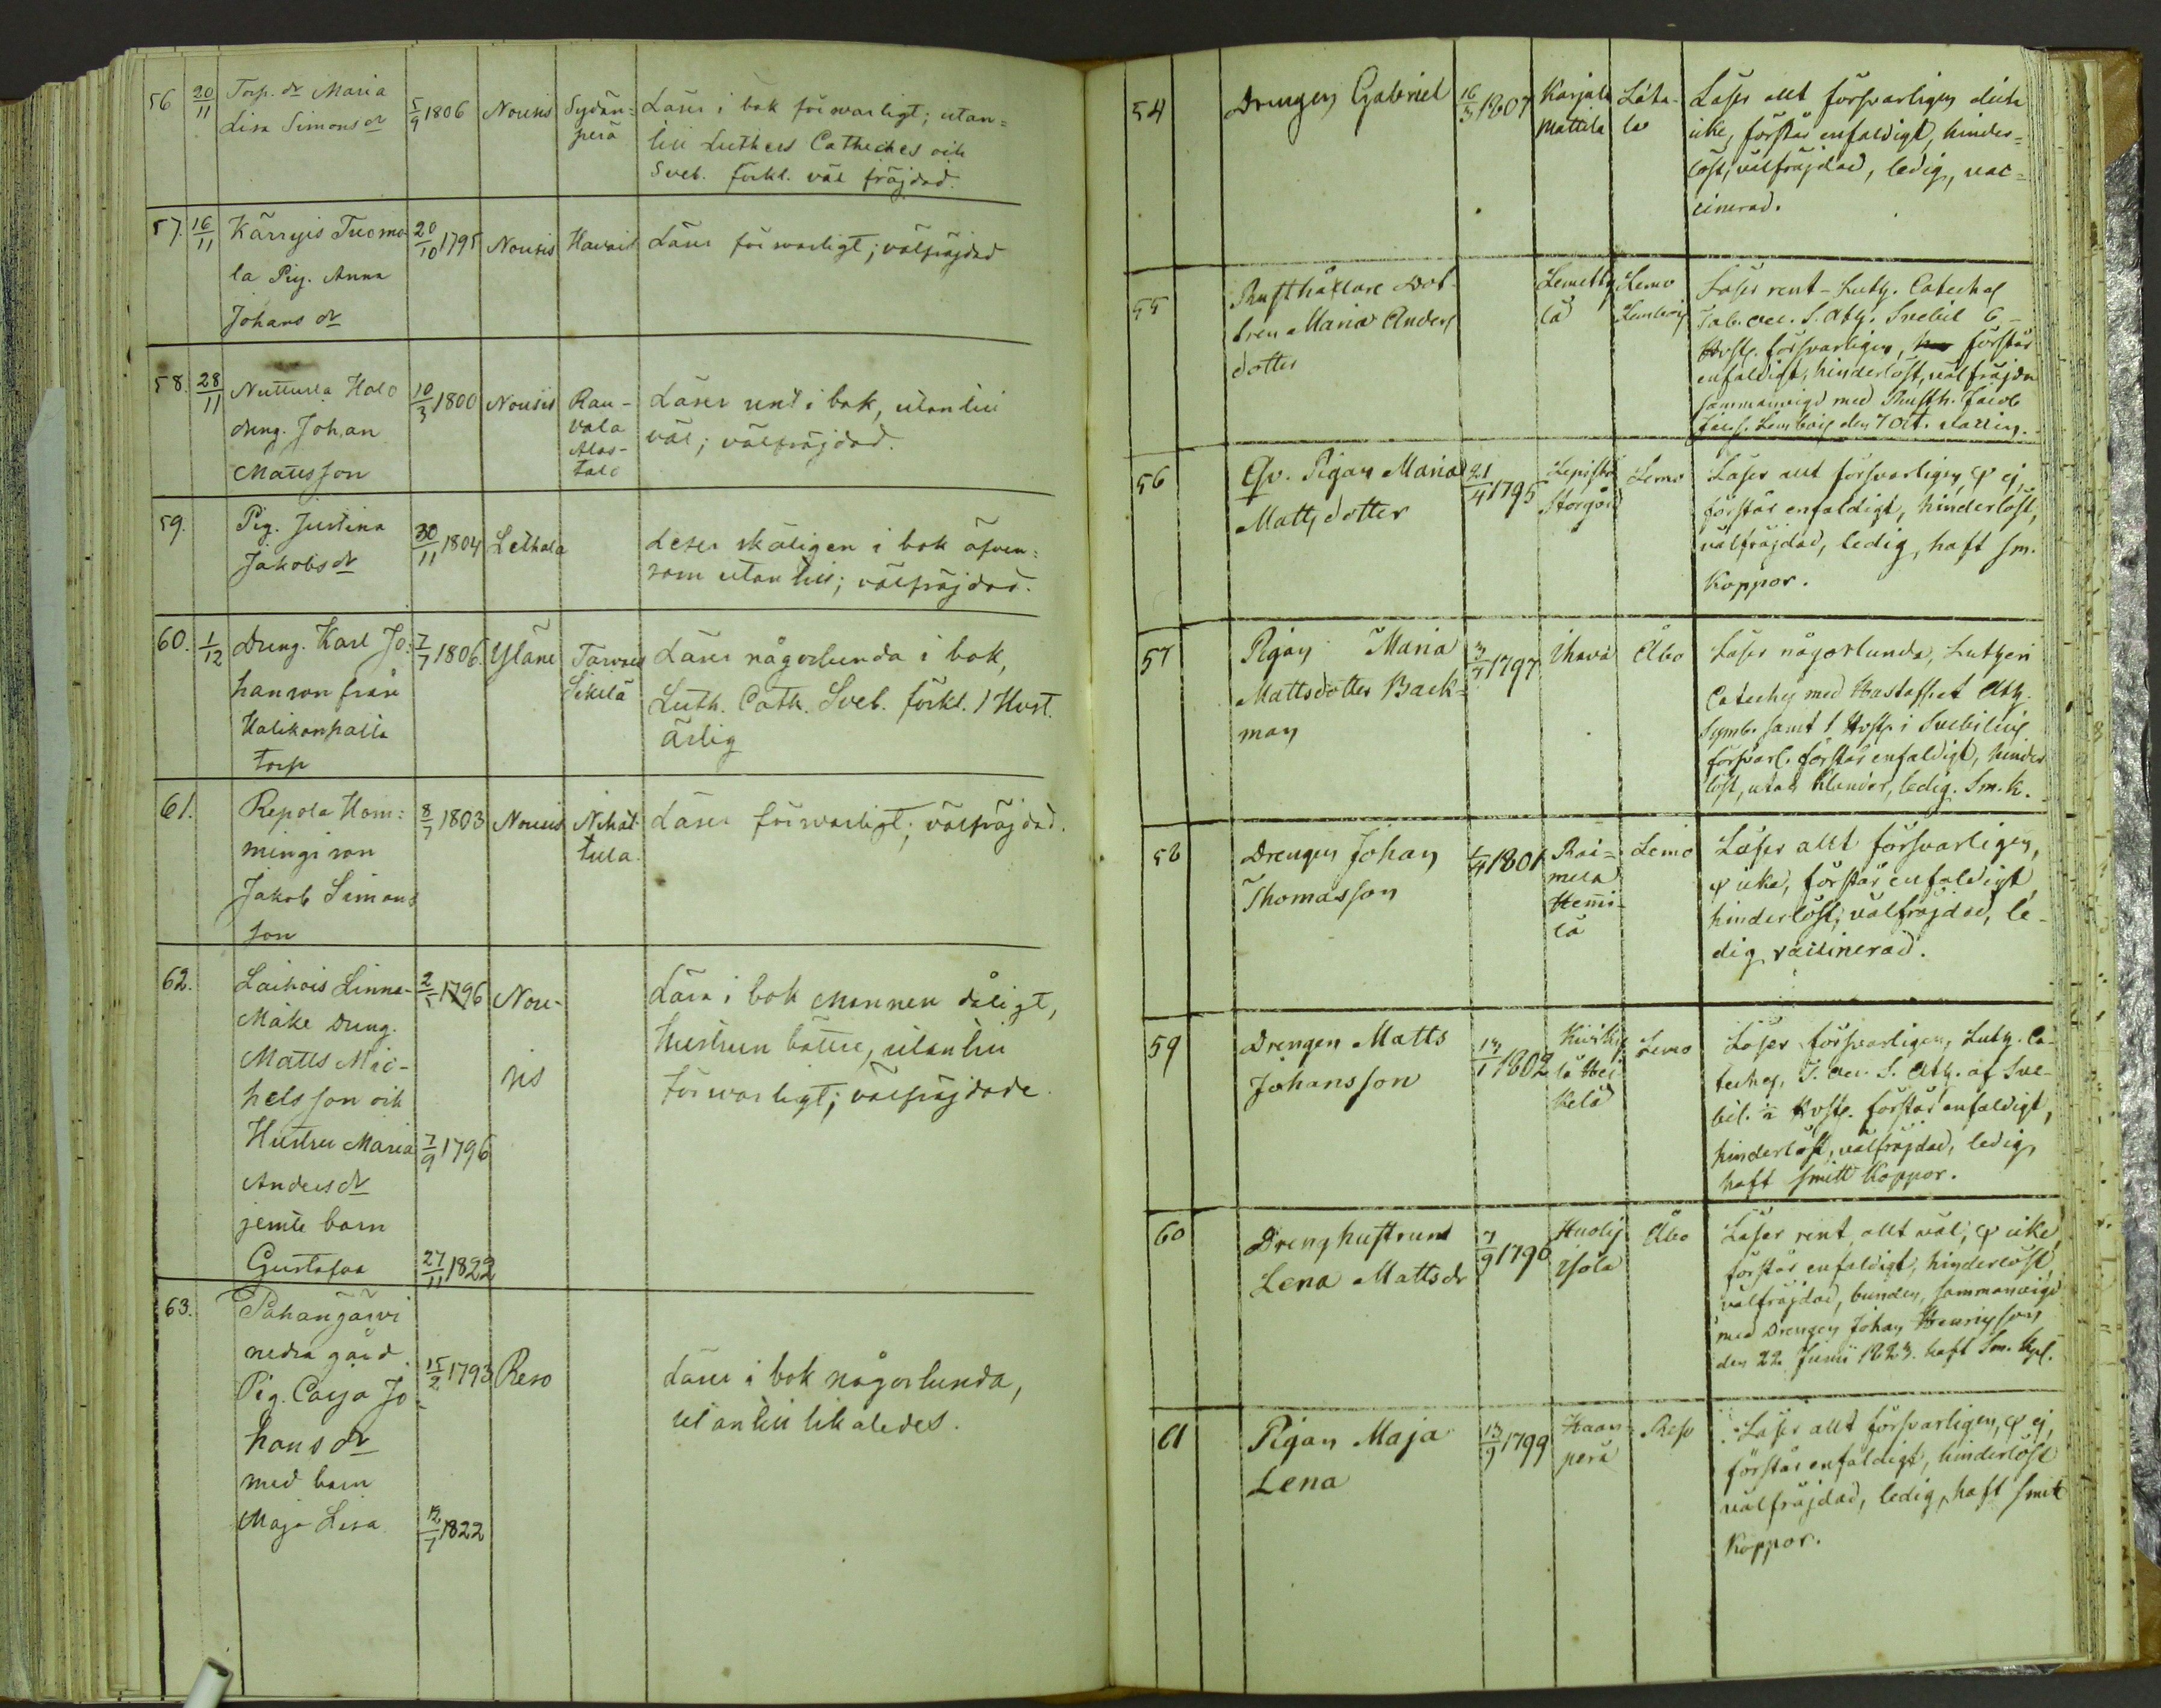 56 20/11 Torp. dr Maria
Lisa Simons dr 5/9 1806 Nousis Sydän=
perä
Läser i bok förswarligt; utan=
till Luthers Catheches och
Sveb. förkl. väl fräjdad.
57. 16/11 Kärryis Tuomo
la Pig. Anna
Johans dr
20/10 1795 Nousis
Läser förswarligt; välfräjdad
58. 28/11 Nutturla Halo
dreng. Johan
Matts son
10/3 1800 Nousis Rau-
vala
Alas-
talo
Läser rent i bok, utan till
väl; välfräjdad.
59. Pig. Justina
Jakobs dr
30/11 1804 Lethala
Leser skäligen i bok äfven=
som utan till; välfräjdad.
60. 1/12 Dreng. Karl Jo=
hanson från
torp
7/7 1806. Yläne
Läser någorlunda i bok,
Luth. Cath. Sveb. förkl. 1 Hvst.
ärlig
61. Repola Hem=
mings son
Jakob Simons
son
8/7 1803 Nousis
tula
Läser förswarligt; välfräjdad.
62. Laihois Linna-
Mäke Dreng.
Matts Mic-
hels son och
Hustru Maria
Anders dr
jemte barn
Gustafva
2/5 1796
7/9 1796
27/11 1822
Nou-
sis
Läsa i bok Mannen dåligt,
Hustrun bättre, utan till
förswarligt; välfräjdade.
63. Pahanjärvi
nedra gård
Pig. Carja Jo
hans dr
med barn
Maja Lisa
15/2 1793 Reso
12/7 1822
Läser i bok någorlunda,
utan till likaledes.
54 Drengen Gabriel 16/3 1807 Karjala
Mattila
Läta-
la
Läser allt försvarligen
icke, förstår enfaldigt, hinder=
löst, välfräjdad, ledig, vac=
cinerad.
55 Rusthållare Dot-
tren Maria Anders
dotter
Lemetty
lä
Lemo
Läser rent Luth. Cateches
enfaldigt, hinderlöst, välfräjdad
sammanvigd med Rusth. Jacob
56 Qv. Pigan Maria
Matts dotter
21/4 1795
Storgård
Lemo
Läser allt försvarligen, & ej,
förstår enfaldigt, hinderlöst,
välfräjdad, ledig, haft sm.
Koppor.
57 Pigan Maria
Mattsdotter Back=
man
3/7 1797 Ihava Åbo
Läser någorlunda, Lutheri
Cateches med Hustaflet Ath.
Symb. samt 1 Hvst. i Svebilius
försvarl. förstår enfaldigt, hinder
löst, utan klander, ledig. Sm. K.
58 Drengen Johan
Thomasson
1801 Rai=
mela
Hemi-
lä
Lemo
Läser allt försvarligen,
& icke, förstår enfaldigt
hinderlöst, välfräjdad, le-
dig, vaccinerad.
59 Drengen Matts
Johansson
13/1 1802
kelä
Lemo
Läser försvarligen, Luth. Ca-
teches,
bil. Hvst. förstår enfaldigt,
hinderlöst, välfräjdad, ledig,
haft smitt Koppor.
60 Dreng hustrun
Lena Matts dr
7/9 1796 Huolij
isola
Åbo
Läser rent, allt väl; & icke,
förstår enfaldigt, hinderlöst,
välfräjdad, bunden, sammanvigd
med Drengen Johan Henricsson
den 22 Junii 1823. haft Sm. Kpl.
61 Pigan Maja
Lena
13/9 1799 Haan=
perä
Reso
Läser allt försvarligen, & ej,
förstår enfaldigt, hinderlöst
välfräjdad, ledig, haft smitt
Koppor.